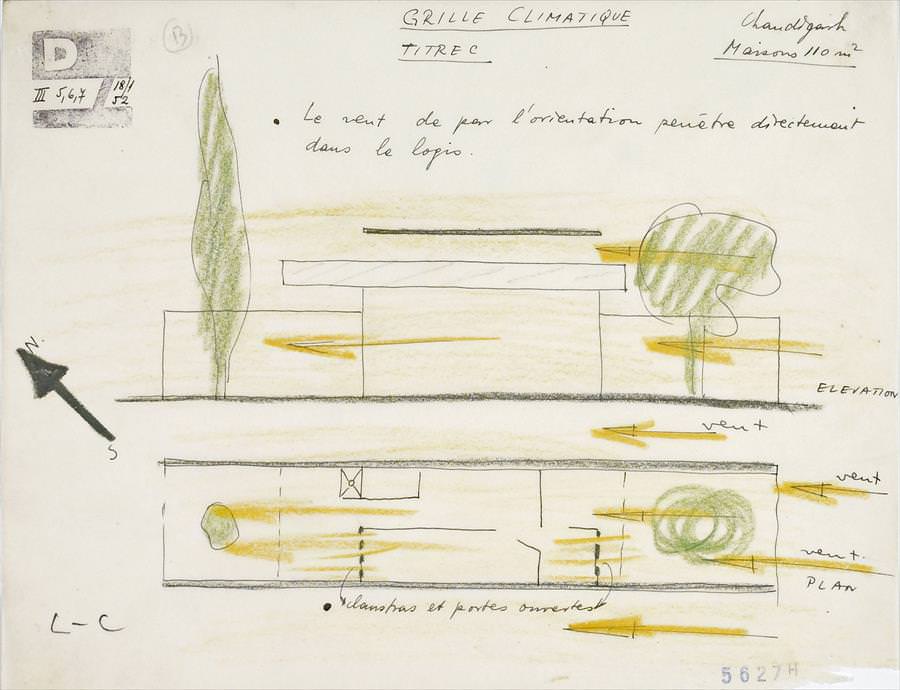 GRILLE CLIMATIQUE
TITRE C
Chandigarh
Maisons 110 m²
B
D
III 5,6,7 18/1 52
• Le vent de par l'orientation penètre directement
dans le logis.
N.
S
ELEVATION
vent
vent
vent.
PLAN
• claustras et portes ouvertes
L-C
5627H